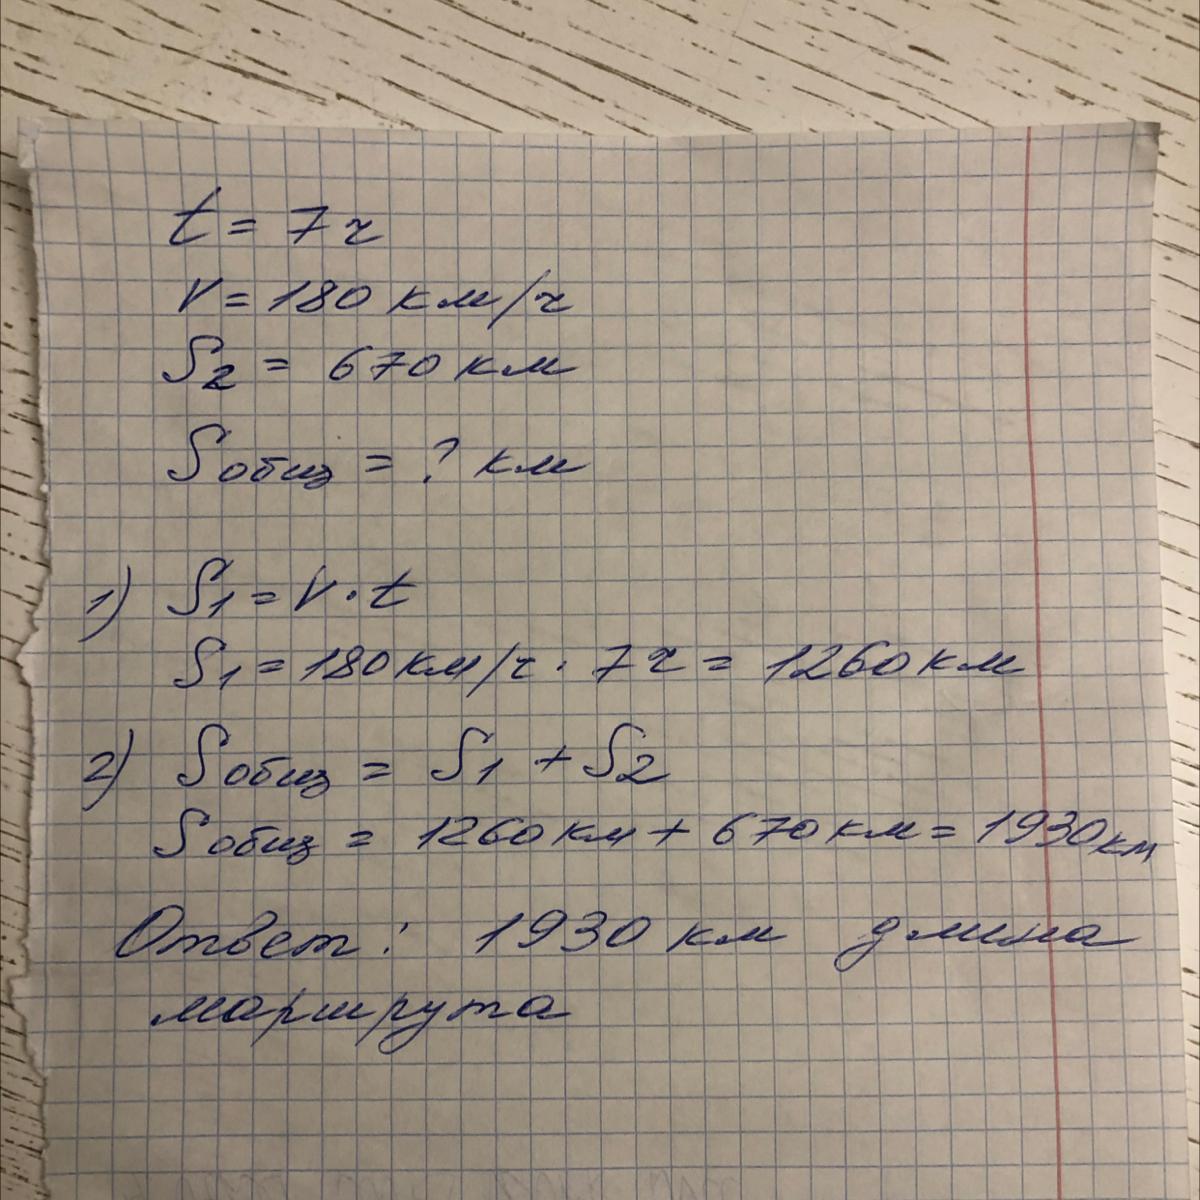 t = 7 ч
V = 180 км/ч
S2 = 670 км
Sобщ = ? км
1) S1 = V · t
S1 = 180 км/ч · 7 ч = 1260 км
2) Sобщ = S1 + S2
Sобщ = 1260 км + 670 км = 1930 км
Ответ: 1930 км длина
маршрута